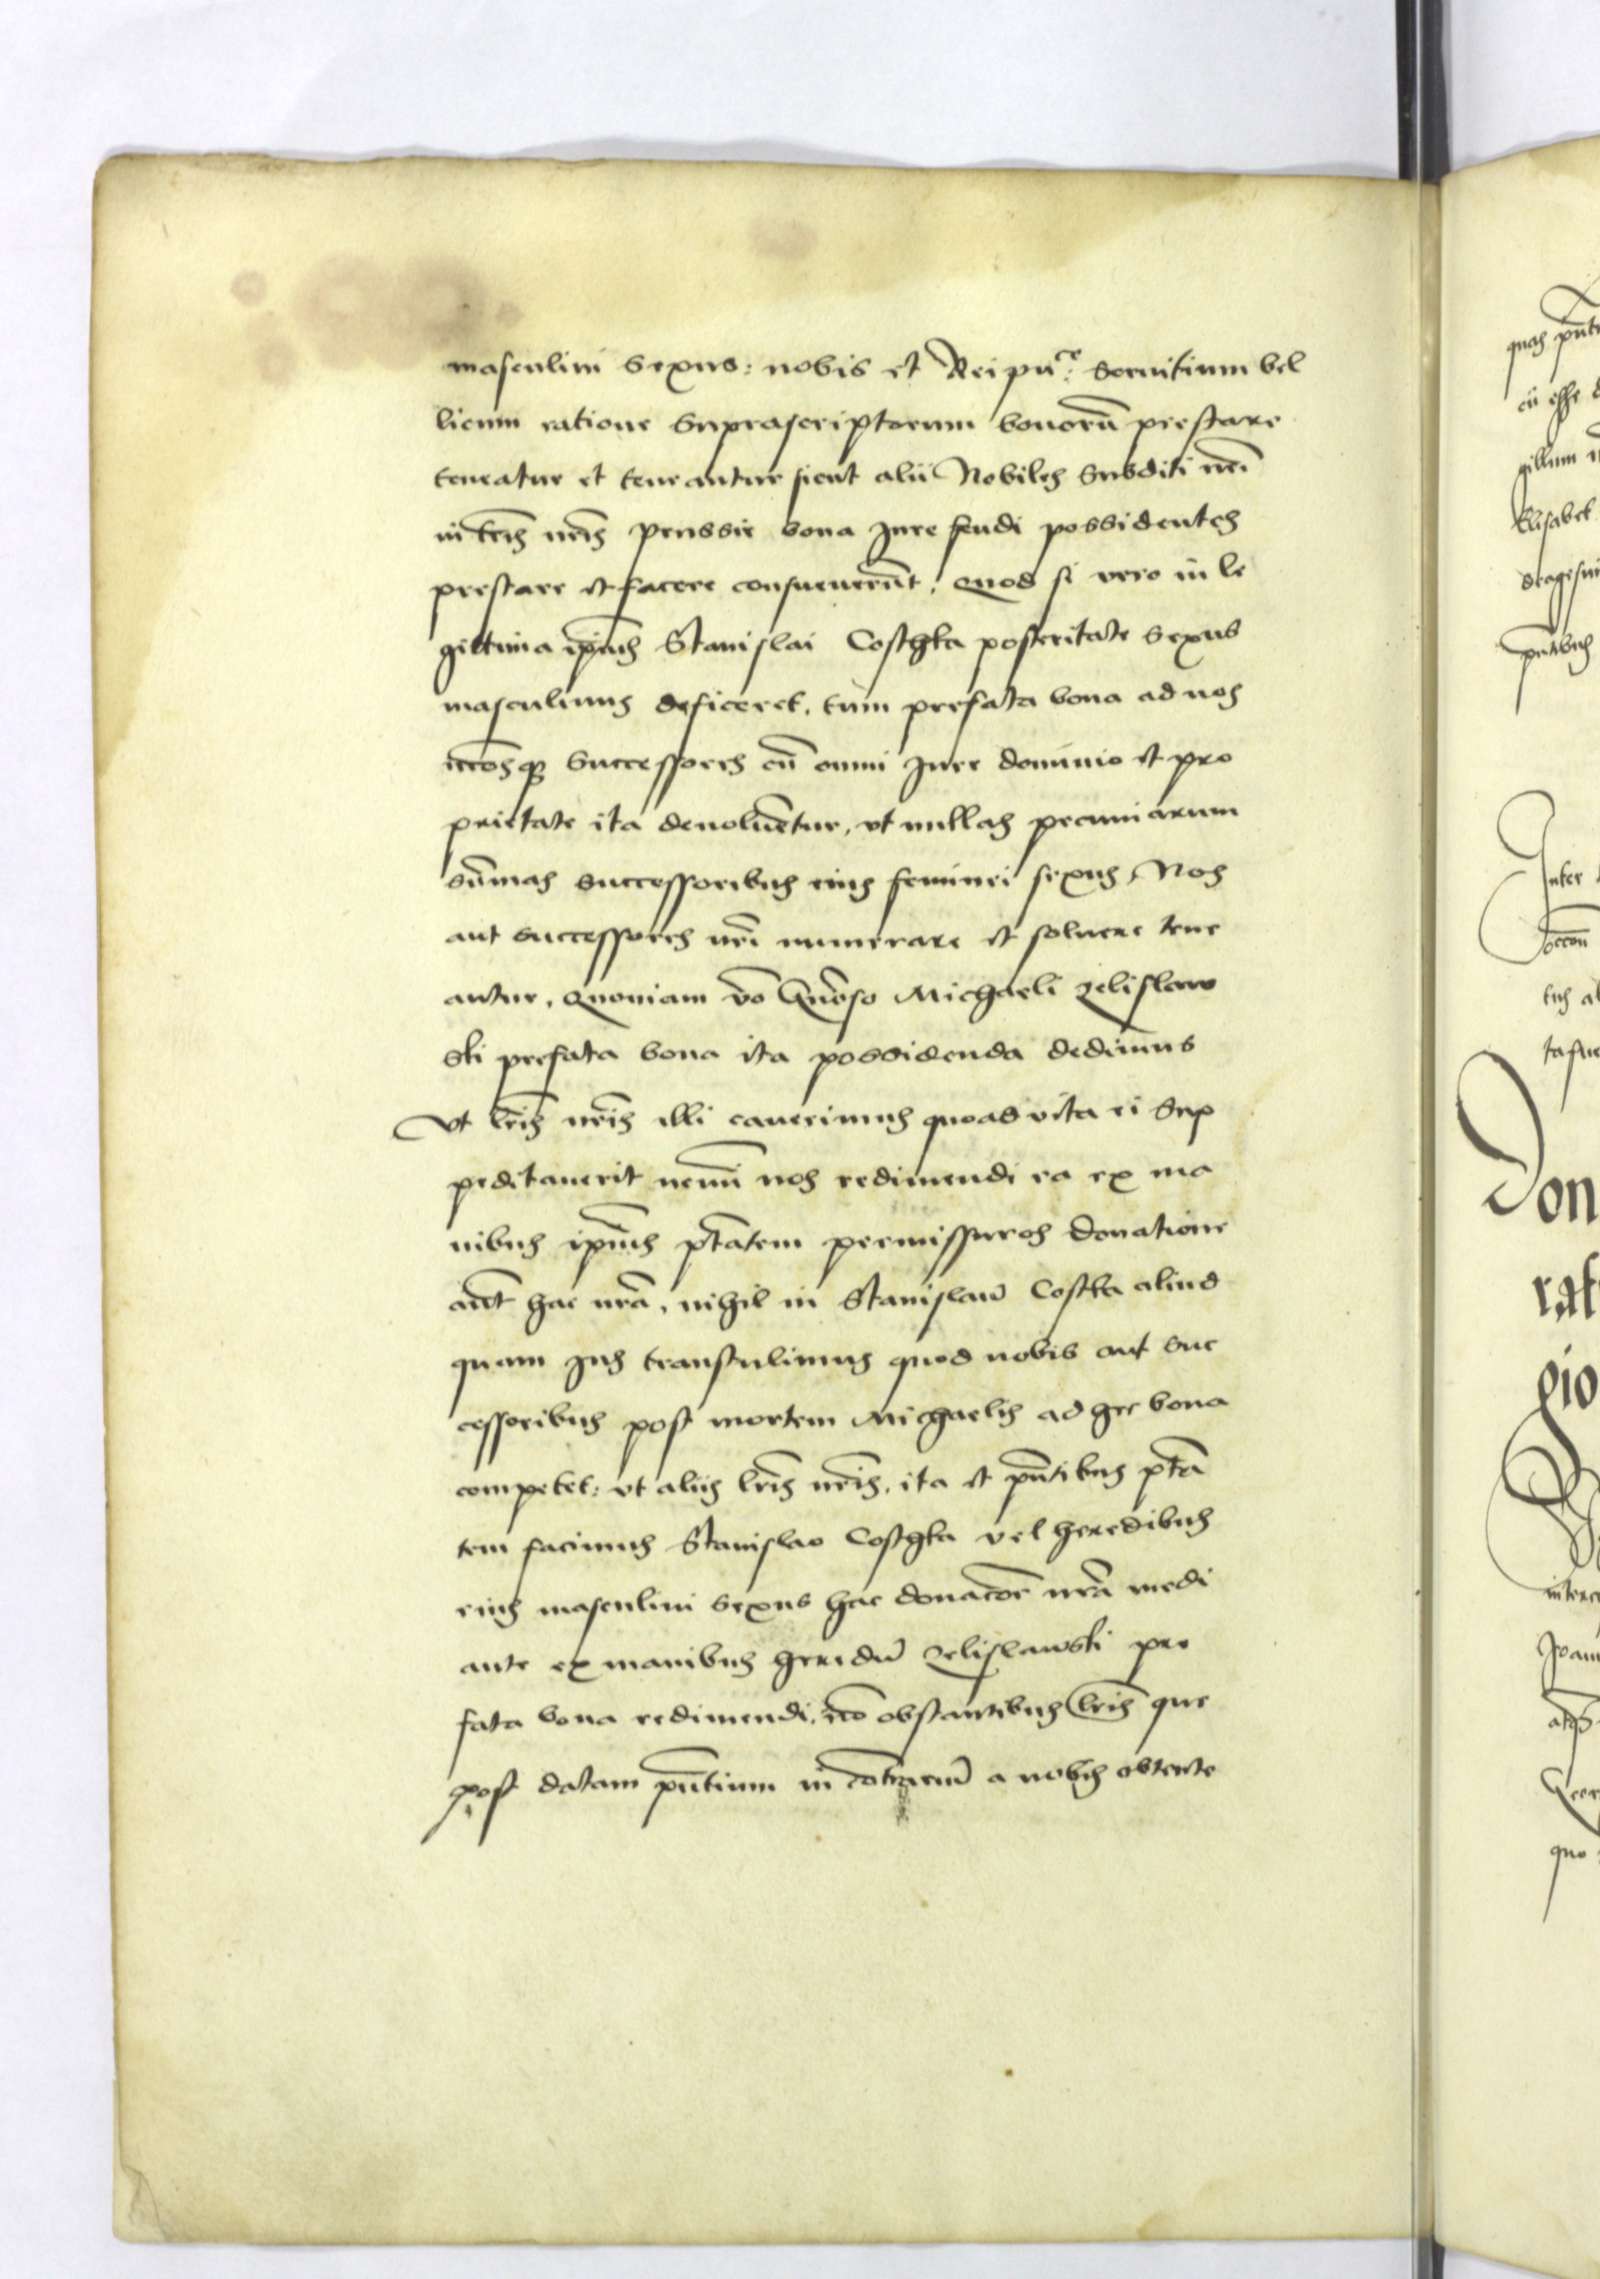 masculini sexus: nobis et Reipu^ce: seruitium bel
licum ratione suprascriptorum bonorū prestare
teneatur et teneantur sicut alii Nobiles Subditi nr̄i
in terr̄is nr̄is Prussie bona Jure feudi possidentes
prestare et facere consueuerūt. Quod si vero in le
gittima ip̄ius Stanislai Costhka posteritate sexus
masculinus deficeret, tum prefata bona ad nos
nr̄osq3 Successores cū omni Jure dominio et pro
prietate ita deuoluētur, vt nullas pecuniarum
sūmas successoribus eius feminei sexus, Nos
aut successores nr̄i numerare et soluere tene
antur, Quoniam v̄o Gn̄oso Michaeli Zelislaw
ski prefata bona ita possidenda dedimus
Vt lr̄is nr̄is illi cauerimus quoad vita ei sup
peditauerit nemi nos redimendi ea ex ma
nibus ip̄ius p̄tatem permissuros donatione
aūt hac nr̄a, nihil in Stanislaū Costka aliud
quam Jus transtulimus quod nobis aut suc
cessoribus post mortem Michaelis ad hec bona
competet: vt aliis lr̄is nr̄is, ita et pn̄tibus p̄ta
tem facimus Stanislao Costhka vel heredibus
eius masculini sexus hac donac̄oe nr̄a medi
ante ex manibus heredū Zelislawski pre
fata bona redimendi, nō obstantibus lr̄is que
post datam pn̄tium in cōtrariū a nobis obtente

quas pn̄t
cū esse
gillum
Elisabet
dragesi
pn̄tibus
Inter
tus al
Don
raf
gio
Joann
quo